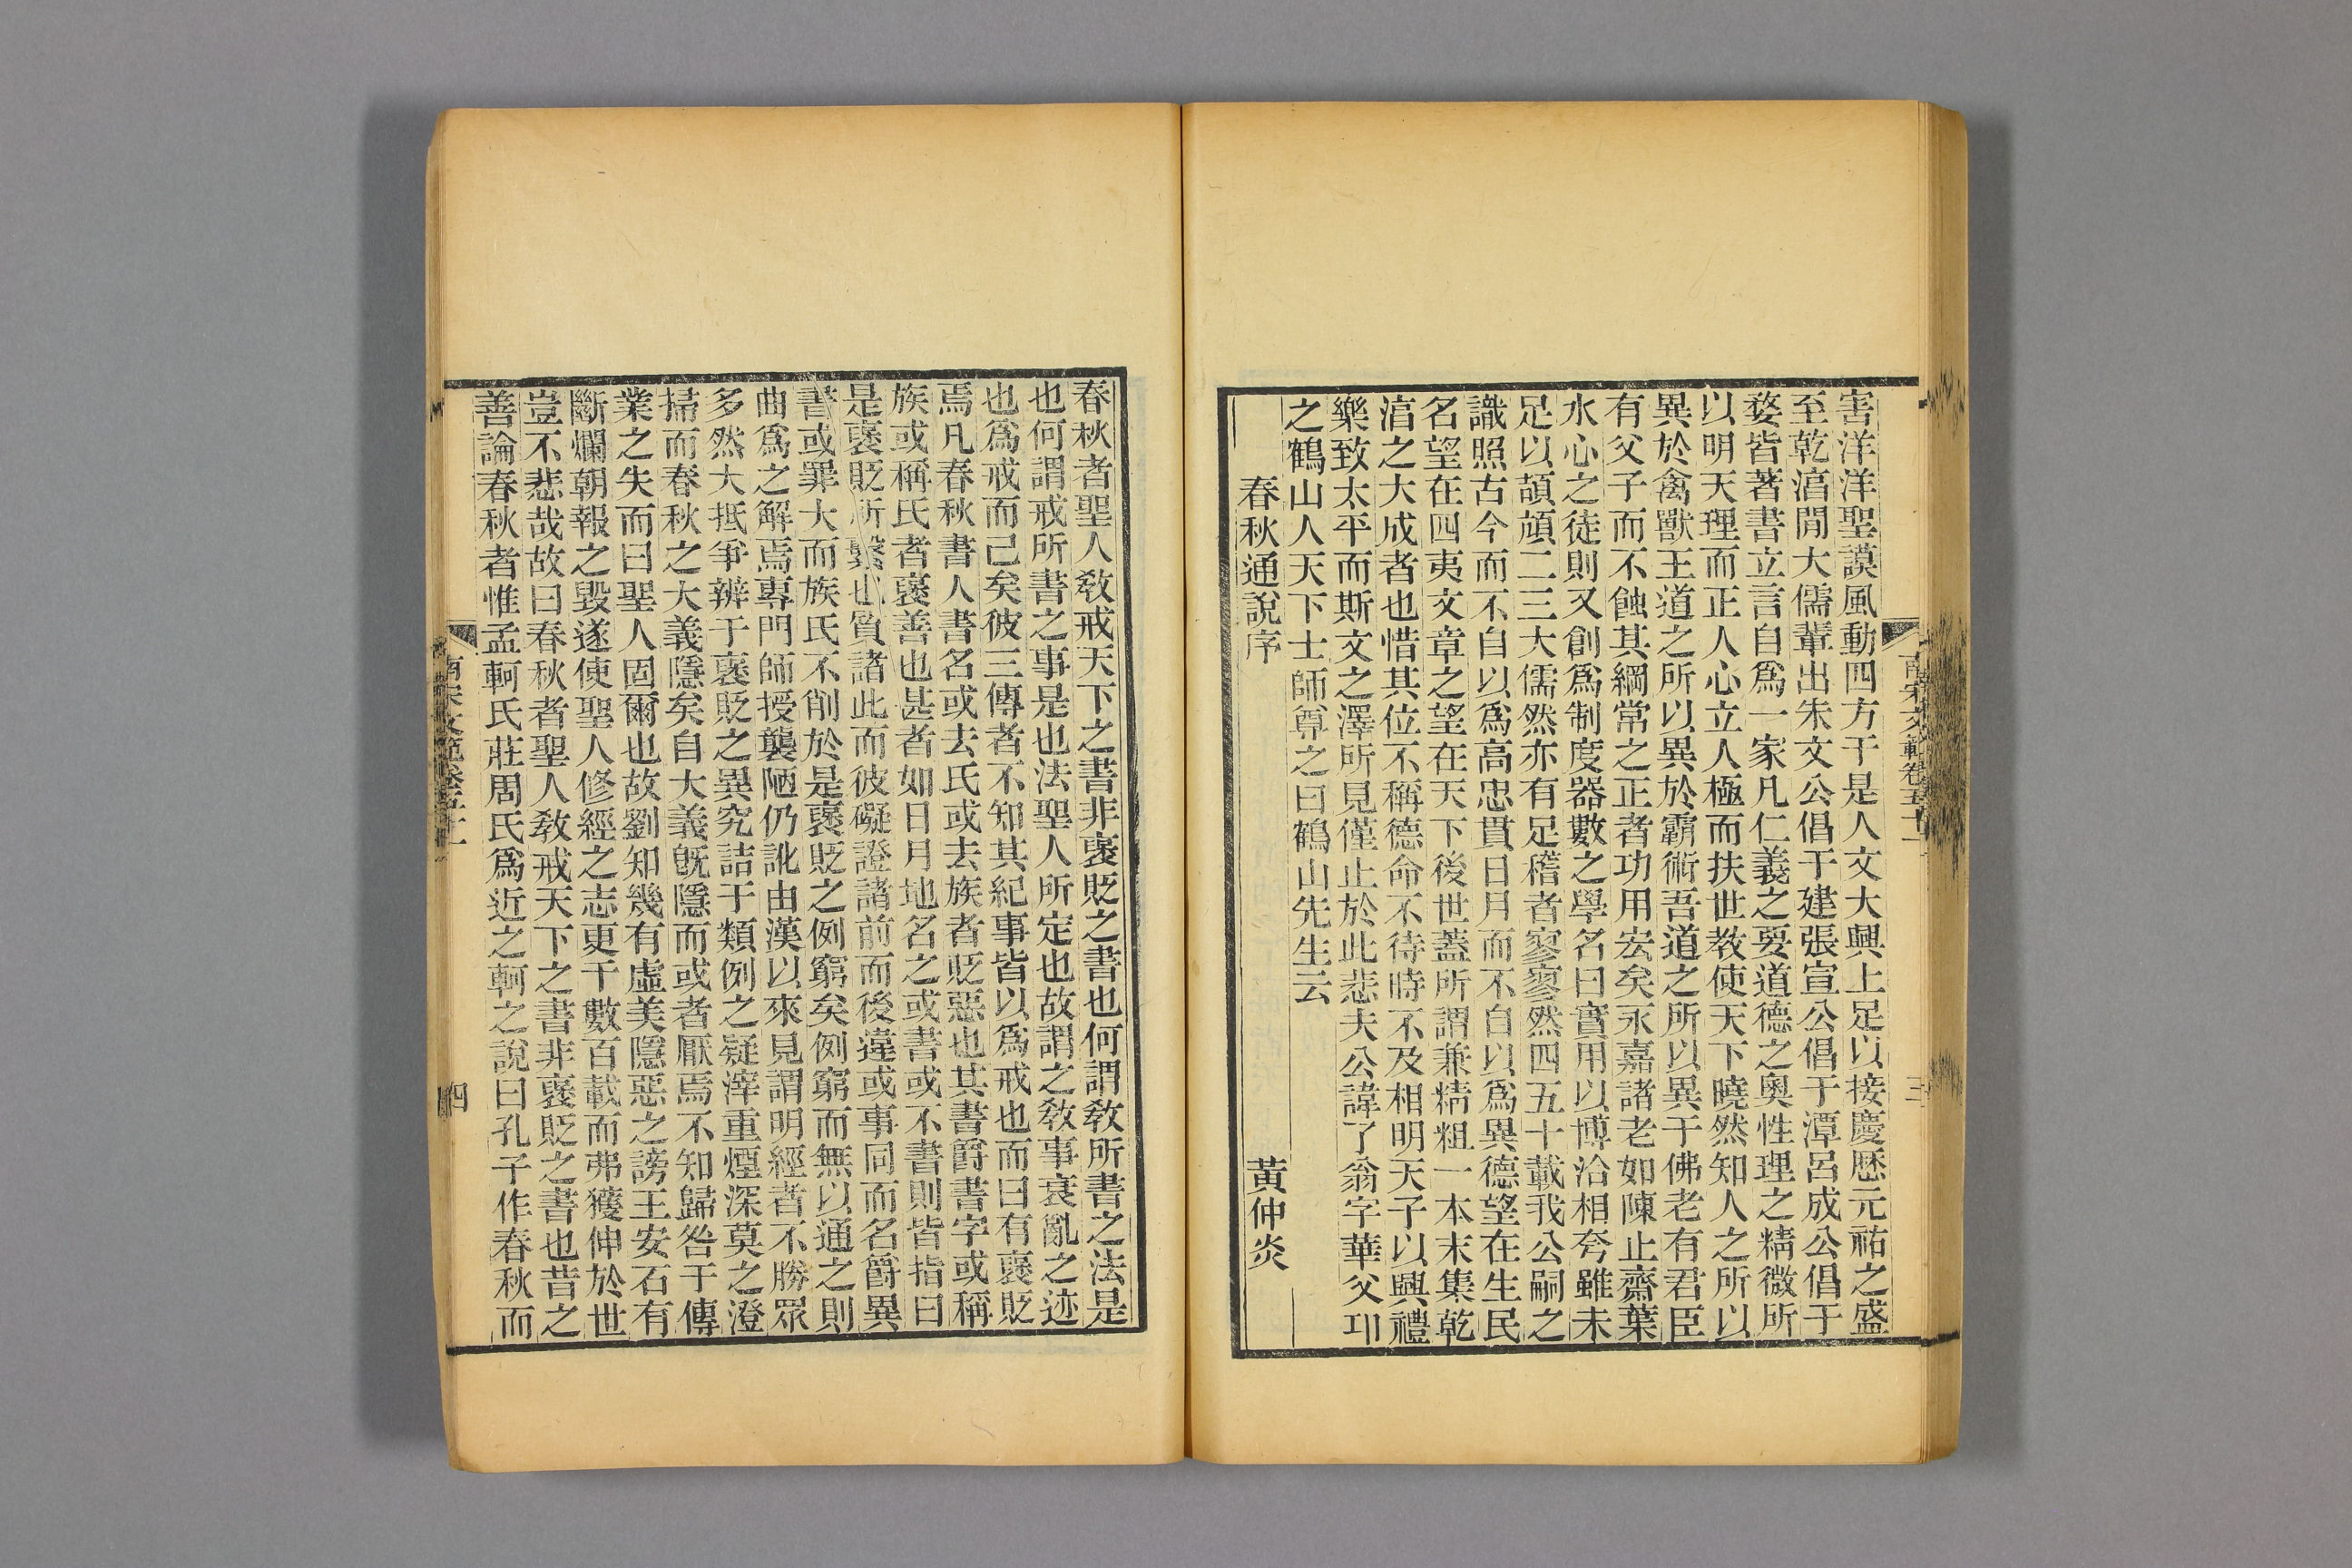 南宋文範卷五十一
三
害洋洋聖謨風動四方于是人文大興上足以接慶歷元祐之盛
至乾淳閒大儒輩出朱文公倡于建張宣公倡于潭呂成公倡于
婺皆著書立言自爲一家凡仁義之要道德之奧性理之精微所
以明天理而正人心立人極而扶世教使天下曉然知人之所以
異於禽獸王道之所以異於霸術吾道之所以異于佛老有君臣
有父子而不蝕其綱常之正者功用宏矣永嘉諸老如陳止齋葉
水心之徒則又創爲制度器數之學名曰實用以博洽相夸雖未
足以頡頏二三大儒然亦有足稽者寥寥然四五十載我公嗣之
識照古今而不自以爲高忠貫日月而不自以爲異德望在生民
名望在四夷文章之望在天下後世蓋所謂兼精粗一本末集乾
淳之大成者也惜其位不稱德命不待時不及相明天子以興禮
樂致太平而斯文之澤所見僅止於此悲夫公諱了翁字華父邛
之鶴山人天下士師尊之曰鶴山先生云
春秋通說序　黃仲炎
春秋者聖人敎戒天下之書非褒貶之書也何謂敎所書之法是
也何謂戒所書之事是也法聖人所定也故謂之敎事衰亂之迹
也爲戒而已矣彼三傳者不知其紀事皆以爲戒也而曰有褒貶
焉凡春秋書人書名或去氏或去族者貶惡也其書爵書字或稱
族或稱氏者褒善也甚者如日月地名之或書或不書則皆指曰
是褒貶所繫也質諸此而彼礙證諸前而後違或事同而名爵異
書或罪大而族氏不削於是褒貶之例窮矣例窮而無以通之則
曲爲之解焉專門師授襲陋仍訛由漢以來見謂明經者不勝眾
多然大抵爭辨于褒貶之異究詰于類例之疑滓重煙深莫之澄
掃而春秋之大義隱矣自大義旣隱而或者厭焉不知歸咎于傳
業之失而曰聖人固爾也故劉知幾有虛美隱惡之謗王安石有
斷爛朝報之毀遂使聖人修經之志更千數百載而弗獲伸於世
豈不悲哉故曰春秋者聖人敎戒天下之書非褒貶之書也昔之
善論春秋者惟孟軻氏莊周氏爲近之軻之說曰孔子作春秋而
南宋文範卷五十一
四